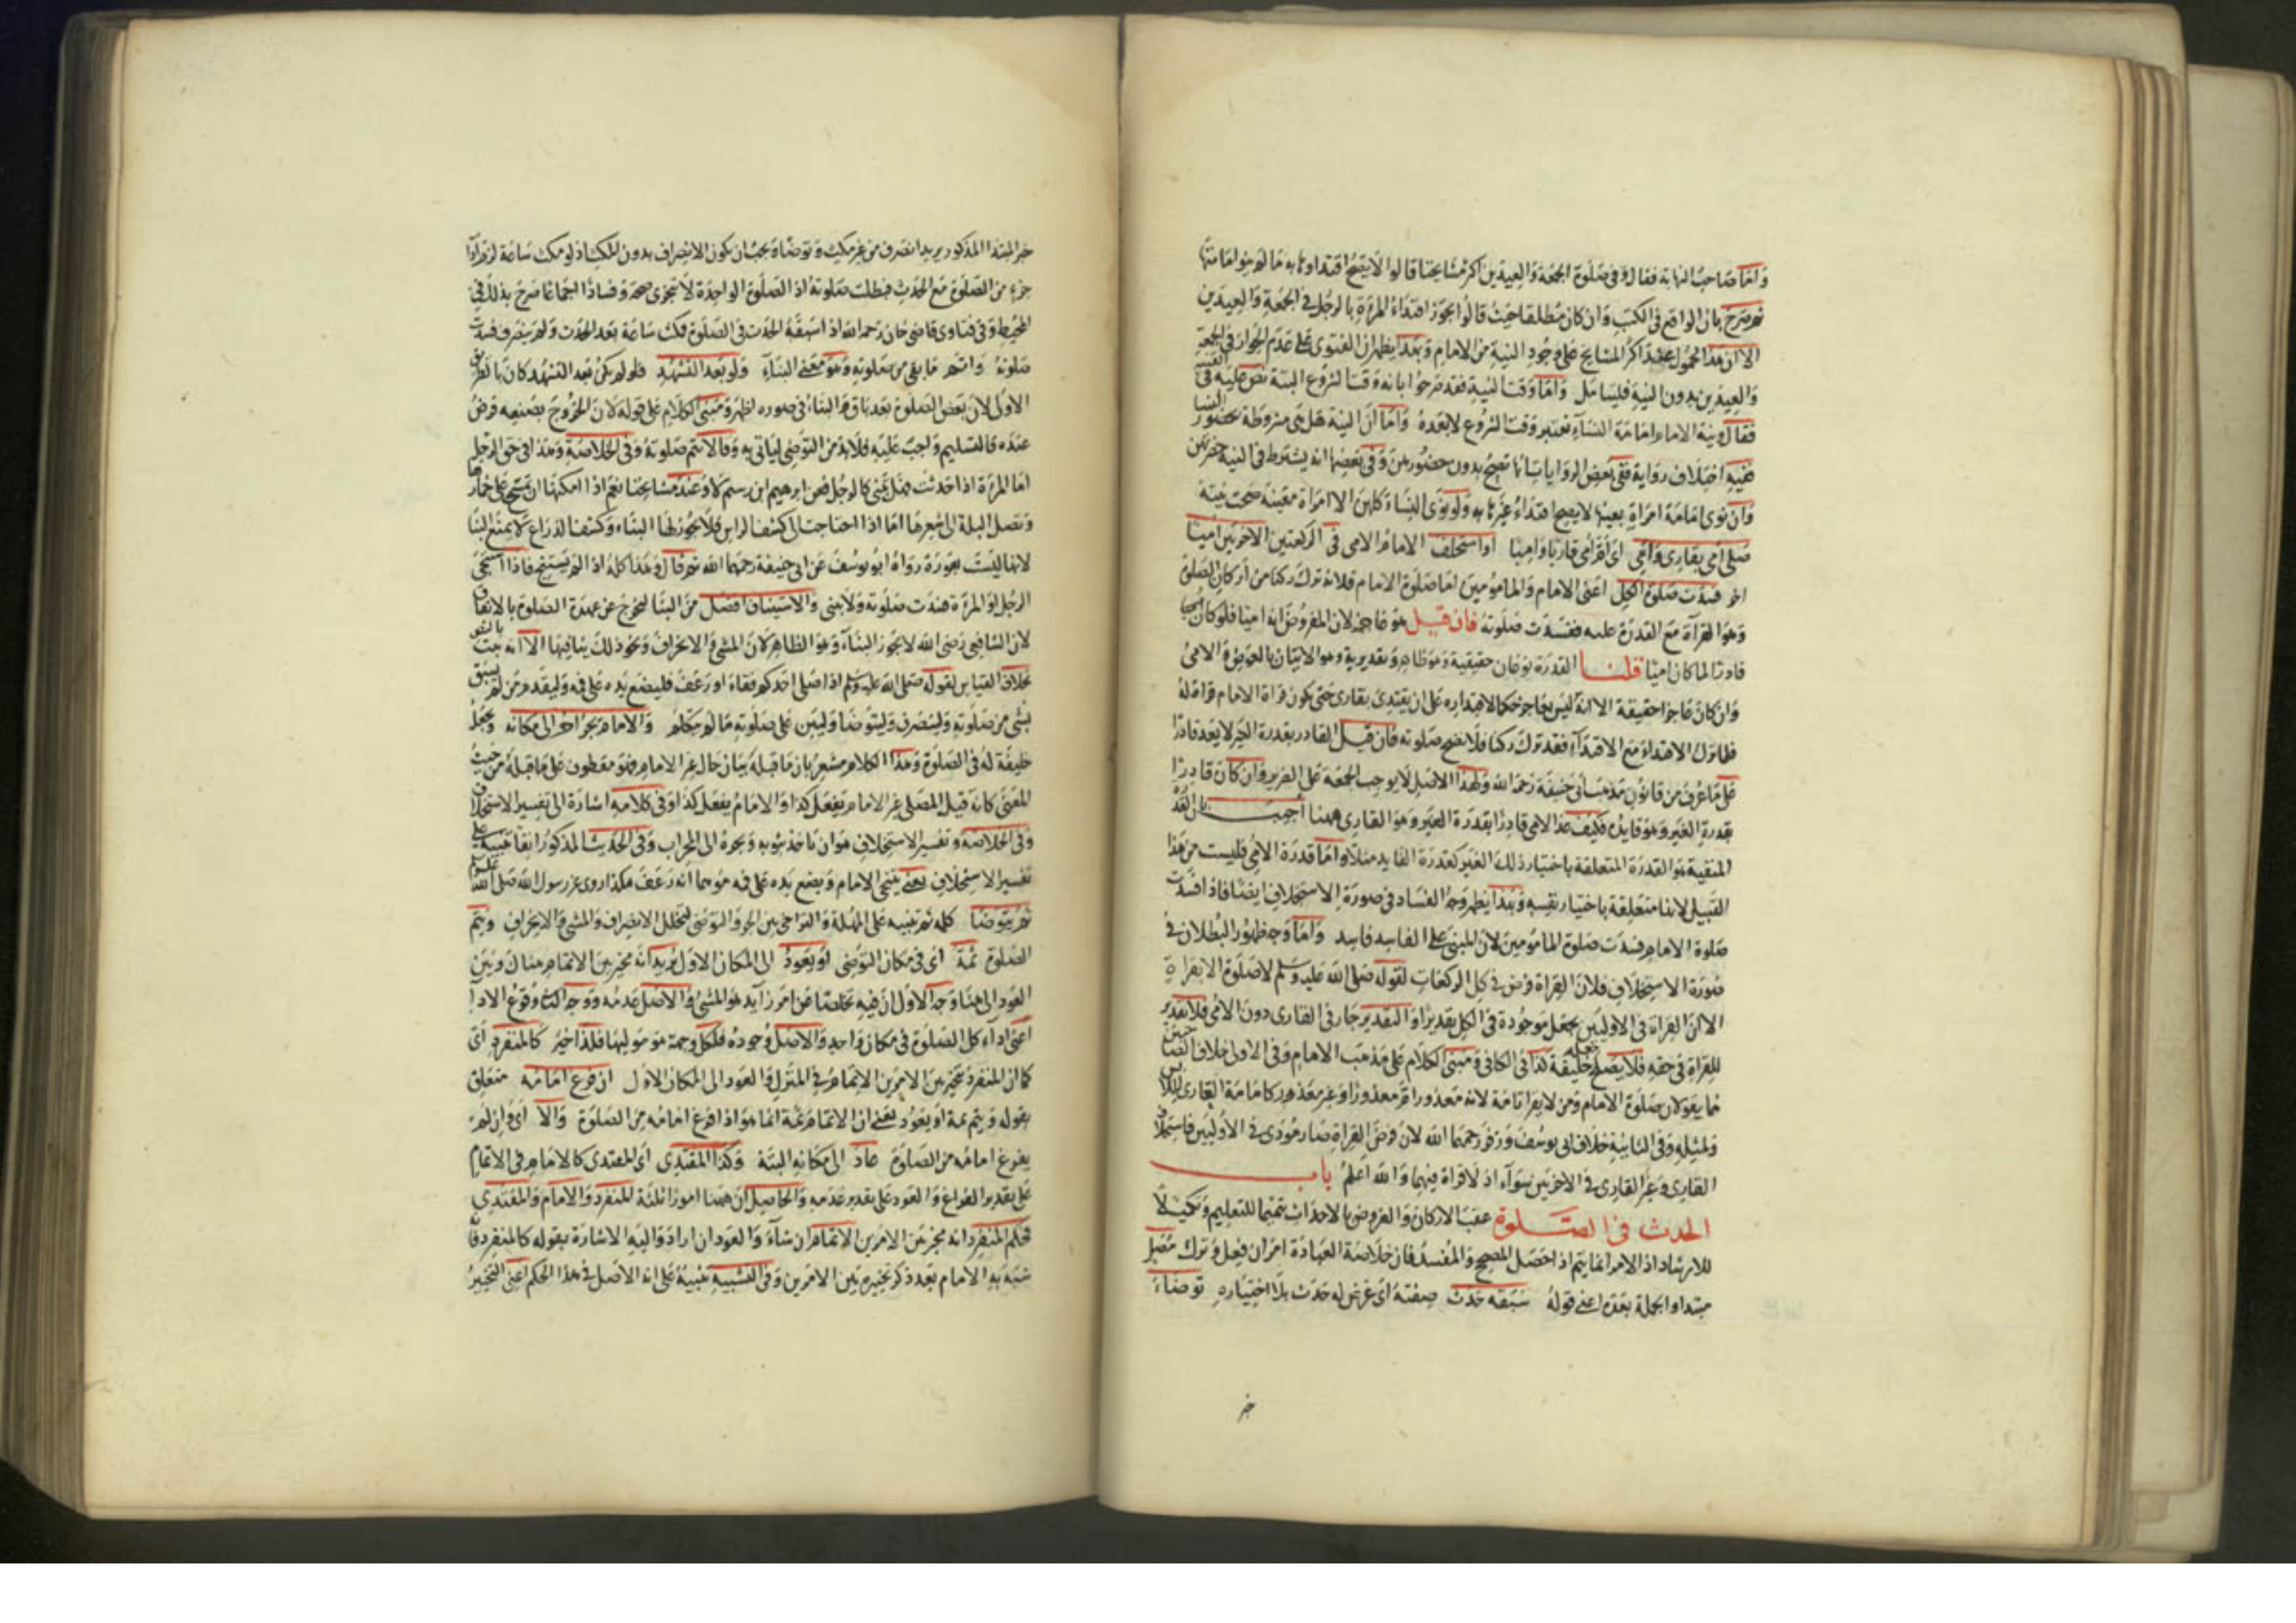 واما صاحب النهاية فقال وفى صلوة الجمعة والعيدين اكثر مشايخنا قالوا لا يصح اقتداوها به ما لم ينو امامتها
ثم صرح بان الواقع فى الكتب وان كان مطلقا حيث قالوا يجوز اقتداء المرءة بالرجل فى الجمعة والعيدين
الا ان هذا محمول عند اكثر المشايخ على وجود النية من الامام وبهذا يظهر ان الفتوى على عدم الجواز فى الجمعة
والعيدين بدون النية فليتامل واما وقت النية فقد صرحوا بانه وقت الشروع البتة نص عليه فى القنية
فقال ونية الامام امامة النساء تعتبر وقت الشروع لا بعده واما ان النية هل هى مشروطة بحضور النسا
ففيه اختلاف رواية ففى بعض الروايات انها تصح بدون حضورهن وفى بعضها انه يشترط فى النية حضرتهن
وان نوى امامة امراة بعينها لا يصح اقتداء غيرها به ولو نوى النساء كلهن الا امراة معينة صحت نيته
صلى امى بقارى وامى اى لو ام امى قاريا واميا او استخلف الامام الامى فى الركعتين الاخريين اميا
اخر فسدت صلوة الكل اعنى الامام والمامومين اما صلوة الامام فلانه ترك ركنا من اركان الصلوة
وهو القرآة مع القدرة عليه ففسدت صلوته فان قيل هو عاجز لان المفروض انه امى فلو كان
قادرا لما كان اميا قلنا القدرة نوعان حقيقية وهو ظاهر وتقديرية وهو الاتيان بالعوض والامى
وان كان عاجزا حقيقة الا انه ليس بعاجز حكما لاقتداره على ان يقتدى بقارى حتى يكون قراة الامام قراة له
فلما ترك الاقتداء مع الاقتدآء فقد ترك ركنا فلا تصح صلوته فان قيل القادر بقدرة الغير لا يعد قادرا
على ما عرف من قانون مذهب ابى حنيفة رحمه الله ولهذا الاصل لا يوجب الجمعة على الضرير وان كان قادرا
بقدرة الغير وهو قايده فكيف عد الامى قادرا بقدرة الغير وهو القارى ههنا اجيب بان القد
المنفية هو القدرة المتعلقة باختيار ذلك الغير كقدرة القايد مثلا واما قدرة الامى فليست من هذا
القبيل لانها متعلقة باختيار نفسه وبهذا يظهر وجه الفساد فى صورة الاستخلاف ايضا فاذا فسدت
صلوة الامام فسدت صلوة المامومين لان المبنى على الفاسد فاسد واما وجه ظهور البطلان فى
صورة الاستخلاف فلان القراة فرض فى كل الركعات لقوله صلى الله عليه وسلم لا صلوة الا بقراءة
الا ان القراة فى الاوليين تجعل موجودة فى الكل تقديرا والتقدير جار فى القارى دون الامى فلا تقدير
للقراة فى حقه فلا يصح جعله خليفة كذا فى الكافى ومبنى الكلام على مذهب الامام وفى الاول خلاف الصاحبين
فانهما يقولان صلوة الامام ومن لا يقرا تامة لانه معذور ام معذورا وغير معذور كامامة العارى للابس
ولمثيله وفى الثانية خلاف ابى يوسف وزفر رحمهما الله لان فرض القراة صار مؤدى فى الاوليين فاستخلاف
القارى وغير القارى فى الاخريين سوآء اذ لا قراة فيهما والله اعلم باب
الحدث فى الصلوة عقب الاركان والفروض بالاحداث تتميما للتعليم وتكميلا
للارشاد اذ الامر انما يتم اذا حصل المصحح والمفسد فان خلاصة العبادة امران فعل وترك مصل
مبتدا والجملة بعده اعنى قوله سبقه حدث صفته اى عرض له حدث بلا اختياره توضاء
خبر
خبر المبتدا المذكور يريد انصرف من غير مكث وتوضا ويجب ان يكون الانصراف بدون المكث اذ لو مكث ساعة لزم ادآ
جزء من الصلوة مع الحدث فبطلت صلوته اذ الصلوة الواحدة لا تتجزى صحة وفسادا اجماعا صرح بذلك فى
المحيط وفى فتاوى قاضى خان رحمه الله اذا سبقه الحدث فى الصلوة فمكث ساعة بعد الحدث ولم ينصرف فسدت
صلوته واتم ما بقى من صلوته وهو معنى البنآء ولو بعد التشهد فلو لم يكن بعد التشهد كان بالطريق
الاول لان بعض الصلوة بعد باق والبناء فى صوره اظهر ومبنى الكلام على قوله لان الخروج بصنعه فرض
عنده فالتسليم واجب عليه فلا بد من التوضى لياتى به وقالا تتم صلوته وفى الخلاصة وهذا فى حق الرجل
اما المرءة اذا احدثت فهل تبنى كالرجل فعن ابرهيم ابن رستم لا وعند مشايخنا نعم اذا امكنها ان تمسح على خمارها
وتصل البلة الى شعرها اما اذا احتاجت الى كشف الراس فلا يجوز لها البناء وكشف الذراع لا يمنع البنا
لانها ليست بعورة رواه ابو يوسف عن ابى حنيفة رحمهما الله ثم قال وهذا كله اذا لم يستنج فاذا استنجى
الرجل او المرءة فسدت صلوته ولا يبنى والاستيناف افضل من البنا ليخرج عن عهدة الصلوة بالاتفاق
لان الشافعى رضى الله لا يجوز البنآء وهو الظاهر لان المشى والانحراف ونحو ذلك ينافيها الا انه ثبت بالنص
بخلاف القياس لقوله صلى الله عليه وسلم اذا صلى احدكم فقاء او رعف فليضع يده على فيه وليقدم من لم يسبق
بشى من صلوته ولينصرف وليتوضا وليبن على صلوته ما لم يتكلم والامام يجر اخر الى مكانه ويجعله
خليفة له فى الصلوة وهذا الكلام مشعر بان ما قبله بيان حال غير الامام فهو معطوف على ما قبله من حيث
المعنى كانه قيل المصلى غير الامام يفعل كذا والامام يفعل كذا وفى كلامه اشارة الى تفسير الاستخلاف
وفى الخلاصة وتفسير الاستخلاف هو ان ياخذ بثوبه ويجره الى المحراب وفى الحديث المذكور انفا تنبيه على
تفسير الاستخلاف يعنى يتنحى الامام ويضع يده على فيه موهما انه رعف هكذا روى عن رسول الله صلى الله عليه وسلم
ثم يتوضا كلمة ثم تنبيه على المهلة والتراخى بين الجر والتوضى لتخلل الانصراف والمشى والانحراف ويتم
الصلوة ثمة اى فى مكان التوضى او يعود الى المكان الاول يريد انه مخير بين الاتمام هناك وبين
العود الى هنا وجه الاول ان فيه تخلصا عن امر زايد هو المشى والاصل عدمه ووجه الثانى وقوع الادا
اعنى ادآء كل الصلوة فى مكان واحد والاصل وجوده فلكل وجهة هو موليها فلذا خير كالمنفرد اى
كما ان المنفرد مخير بين الامرين الاتمام فى المنزل والعود الى المكان الاول ان فرغ امامه متعلق
بقوله ويتم ثمة او يعود يعنى ان الاتمام ثمة انما هو اذا فرغ امامه من الصلوة والا اى وان لم
يفرغ امامه من الصلوة عاد الى مكانه البتة وكذا المقتدى اى المقتدى كالامام فى الاتمام
على تقدير الفراغ والعود على تقدير عدمه والحاصل ان ههنا امورا ثلثة المنفرد والامام والمقتدى
فحكم المنفرد انه مخير بين الامرين الاتمام ان شآء والعود ان اراد واليه الاشارة بقوله كالمنفرد فا
شبه به الامام بعد ذكر تخييره بين الامرين وفى التشبيه تنبيه على انه الاصل فى هذا الحكم اعنى التخيير